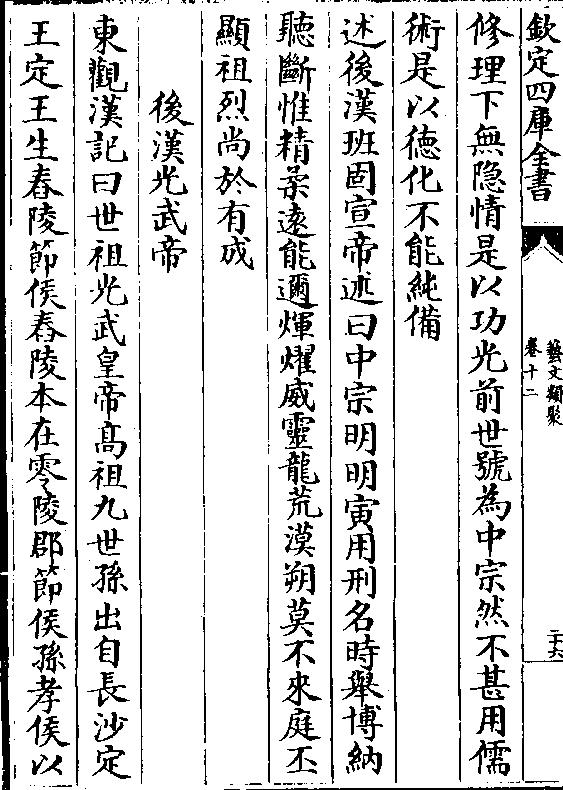 欽定四庫全書
藝文類聚
卷十二
二十六
修理下無隐情是以功光前世號為中宗然不甚用儒
術是以德化不能純備
述後漢班固宣帝述曰中宗明明寅用刑名時舉博納
聽斷惟精柔遠能邇煇燿威靈龍荒漠朔莫不來庭丕
顯祖烈尚於有成
後漢光武帝
東觀漢記曰世祖光武皇帝髙祖九世孫出自長沙定
王定王生舂陵節侯舂陵本在零陵郡節侯孫孝侯以